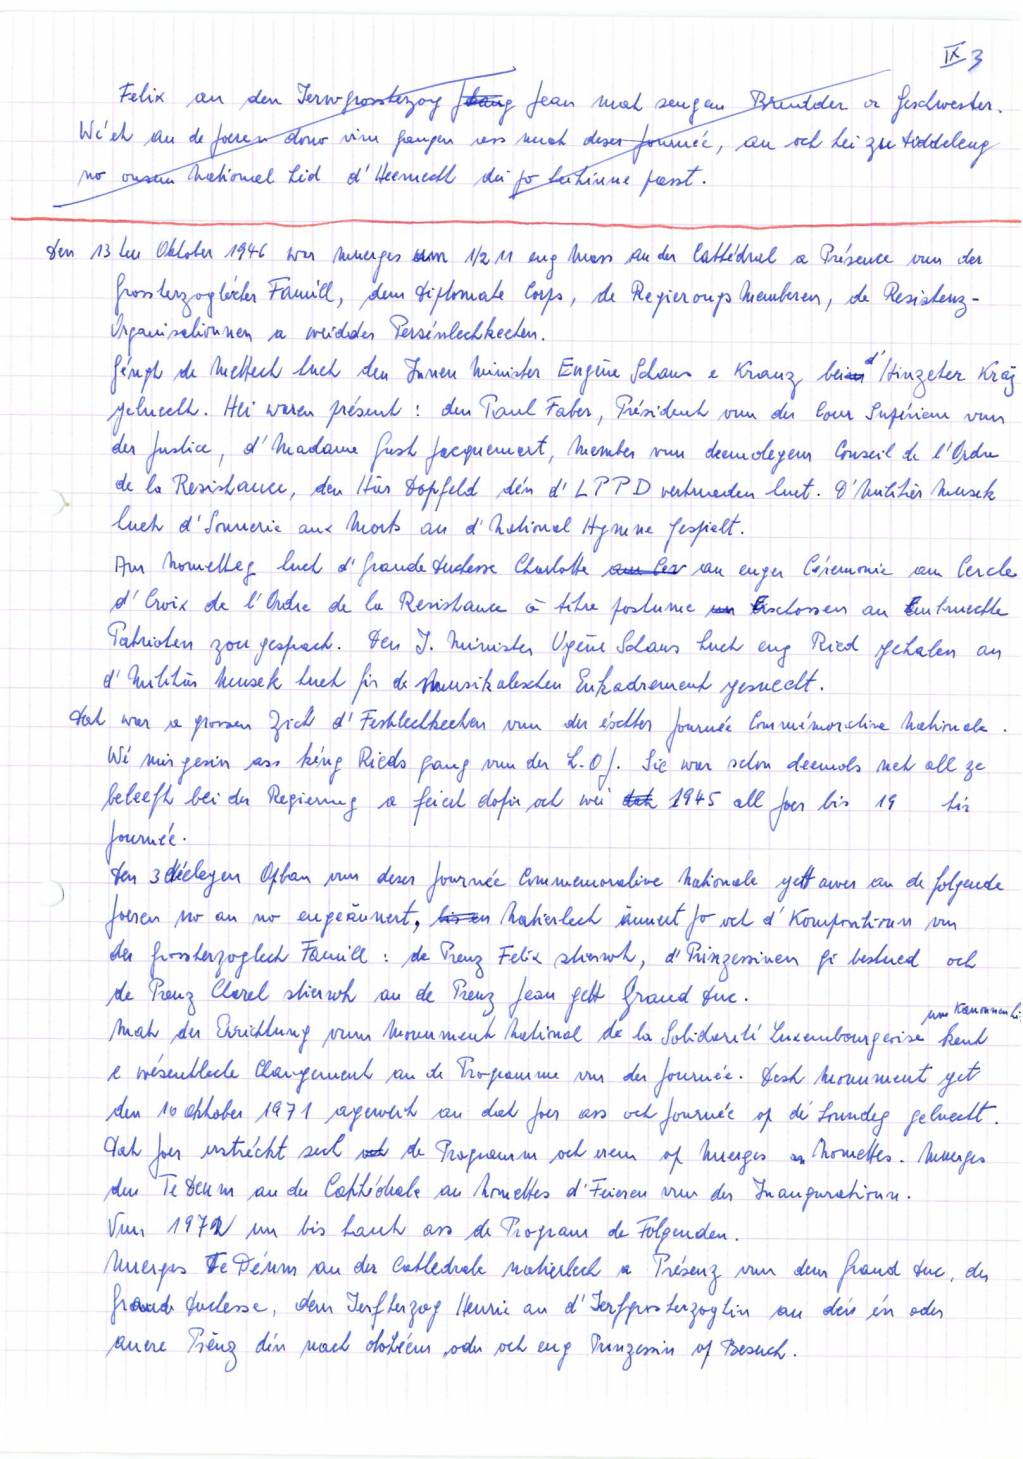 IX 3
Felix an den Ierwgrossherzog Jean mat sengen Bridder a Geschwester.
Wéi an de Joeren dono virun gangen ass mat deser Journée, an och hei zu Diddeleng
no onsem National Lid d'Heemecht déi jo
Den 13ten Oktober 1946 war muerges um 1/2 11 eng Mass an der Cathédral a Présence vun der
Grossherzoglecher Famill, dem Diplomate Corps, de Regierungs Memberen, de Resistenz-
Organisatiounen a weideder Persénlechkeeten.
Géngt de Mëtteg huet den Innen Minister Eugène Schaus e Kranz beim d'Hinzerter Kräiz
geluecht. Hei waren présent: den Paul Faber, Président vun der Cour Supérieur vun
der Justice, d'Madame Gust Jacquemart, Member vum deemolegem Conseil de l'Ordre
de la Resistance, den Här Dopfeld dén d'LPPD vertrueden huet. D'Militär Musek
huet d'Sonnerie aux Morts an d'National Hymne gespielt.
Am Nometteg huet d'Grande Duchesse Charlotte an enger Cérémonie am Cercle
d'Croix de l'Ordre de la Resistance à titre postume Erschossen an
Patrioten zou gesprach. Den I. Minister Ugène Schaus huet eng Ried gehalen an
d'Militär Musek huet fir de musikaleschen Enkadrement gesuecht.
Dat war a groussen Zich d'Festlechkeeten vun der éischter Journée Commémorative Nationale.
Wi mir gesin ass kéng Rieds gang vun der L.O.J. Sie war schon deemols net all ze
beleeft bei der Regierung a feiert dofir och wéi 1945 all Joer bis 19 hir
Journée.
Den 3 Opbau vun deser Journée Commemorative Nationale gett awer an de folgende
Joeren no an no engeännert, Natierlech ännert jo och d'Kompositioun vun
der Grossherzoglech Famill: de Prenz Felix stierwt, d'Prinzessinen gi bestued och
de Prenz Charel stierwt an de Prenz Jean gett Grand Duc.
Mat der Errichtung vum Monument National de la Solidarité Luxembourgeoise kent
um Kanounen
e wesentleche Changement an de Programme vun der Journée. Dest Monument get
den 10 Oktober 1971 ageweit an dat Joer ass och Journée op dë Sonndeg geluecht.
Dat Joer erstréckt sech de Programm och erem op Muerges an Nomettes. Muerges
den Te Deum an der Cathédrale an Nomettes d'Feieren vun der Inauguratioun.
Vun 1972 un bis haut ass de Program de Folgenden.
Muerges Te Deum an der Cathedrale natierlech a Présenz vun dem Grand Duc, der
Grande Duchesse, dem Ierfherzog Henri an d'Ierfgrosherzogin an déi én oder
anere Prënz dén nach doheem, oder och eng Prinzessin op Besuch.